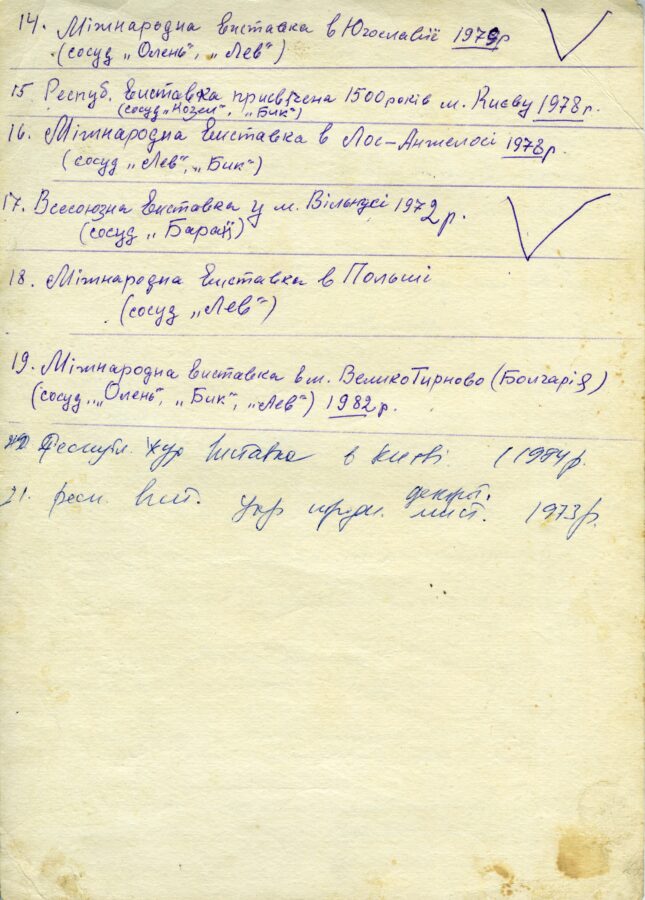 14. Міжнародна виставка в Югославії 1979р
(сосуд „Олень", „Лев")
15 Респуб. виставка присвячена 1500 років м. Києву 1978 р.
(сосуд „Козел", „Бик")
16. Міжнародна виставка в Лос-Анжелосі 1978р.
(сосуд „Лев", „Бик")
17. Всесоюзна виставка у м. Вільнусі 1972 р.
(сосуд „Баран")
18. Міжнародна виставка в Польші
(сосуд „Лев")
19. Міжнародна виставка в м. Великотирново (Болгарія)
(сосуд „Олень", „Бик", „Лев") 1982р.
Республ. худ виставка в Києві.
21. респ. вист. укр декрт. мист. 1973р.